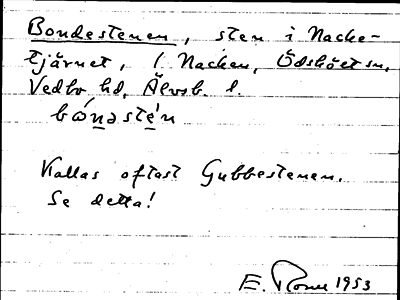 Bondestenen, sten i Nacke-
tjärnet, 1 Nacken, Ödskölt sn,
Vedbo hd, Älvsb. l.
Kallas oftast Gubbestenen.
Se detta!
E. 1953